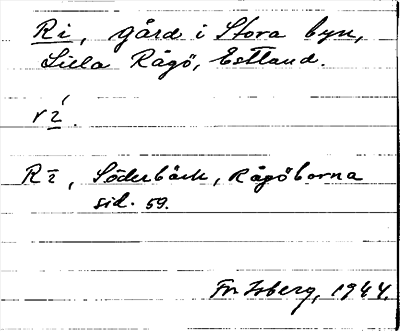 Ri, gård i Stora byn,
Lilla Rågö, Estland.
Rī, Söderbäck, Rågöborna
sid. 59.
Isberg, 1944.